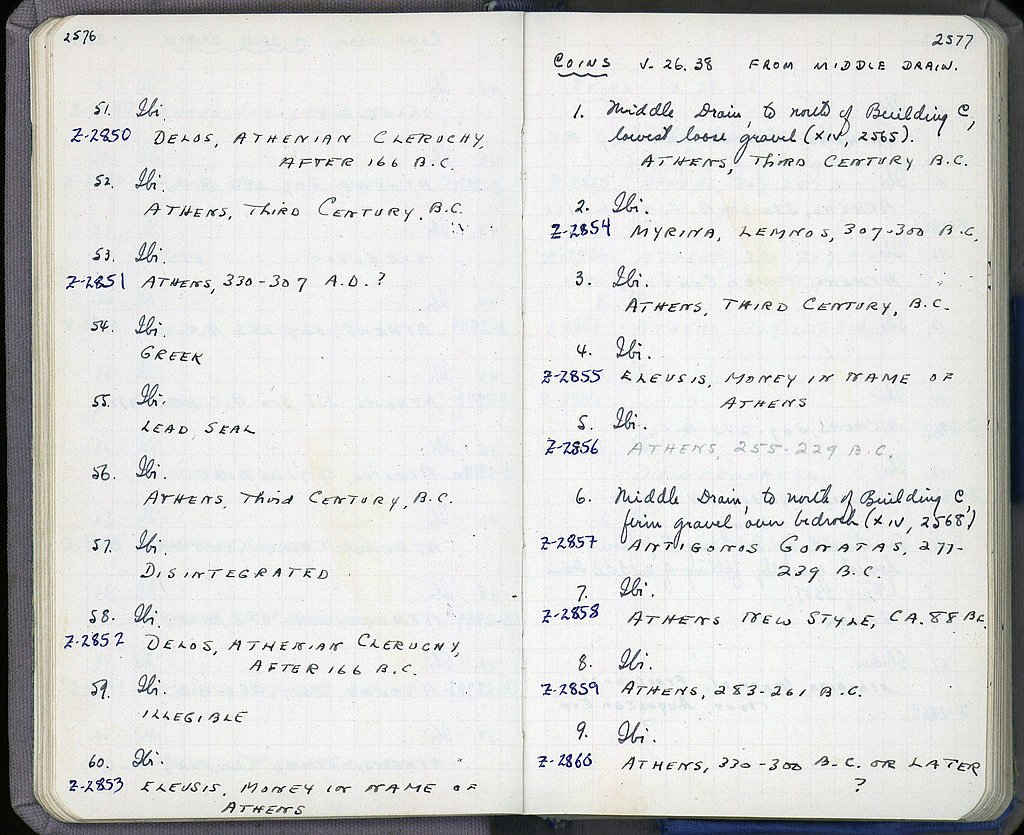 2576
51. Ibi.
Z-2850 DELOS, ATHENIAN CLERUCHY,
AFTER 166 B.C.
52. Ibi.
ATHENS, THIRD CENTURY, B.C.
53. Ibi.
Z-2851 ATHENS, 330-307 A.D.?
54. Ibi.
GREEK
55. Ibi.
LEAD SEAL
56. Ibi.
ATHENS, THIRD CENTURY, B.C.
57. Ibi
DISINTEGRATED
58. Ibi.
Z-2852 DELOS, ATHENIAN CLERUCHY,
AFTER 166 B.C.
59. Ibi.
ILLEGIBLE
60. Ibi.
Z-2853 ELEUSIS, MONEY IN NAME OF
ATHENS
2577
COINS V. 26. 38 FROM MIDDLE DRAIN.
1. Middle Drain, to north of Building C,
lowest loose gravel (XIV, 2565).
ATHENS, THIRD CENTURY B.C.
2. Ibi.
Z-2854 MYRINA, LEMNOS, 307-300 B.C.
3. Ibi.
ATHENS, THIRD CENTURY, B.C.
4. Ibi.
Z-2855 ELEUSIS, MONEY IN NAME OF
ATHENS
5. Ibi.
Z-2856 ATHENS, 255-229 B.C.
6. Middle Drain, to north of Building C,
firm gravel over bedrock (XIV, 2568)
Z-2857 ANTIGONOS GONATAS, 277-
239 B.C.
7. Ibi.
Z-2858 ATHENS NEW STYLE, CA. 88 BC.
8. Ibi.
Z-2859 ATHENS, 283-261 B.C.
9. Ibi.
Z-2860 ATHENS, 330-300 B.C. OR LATER
?